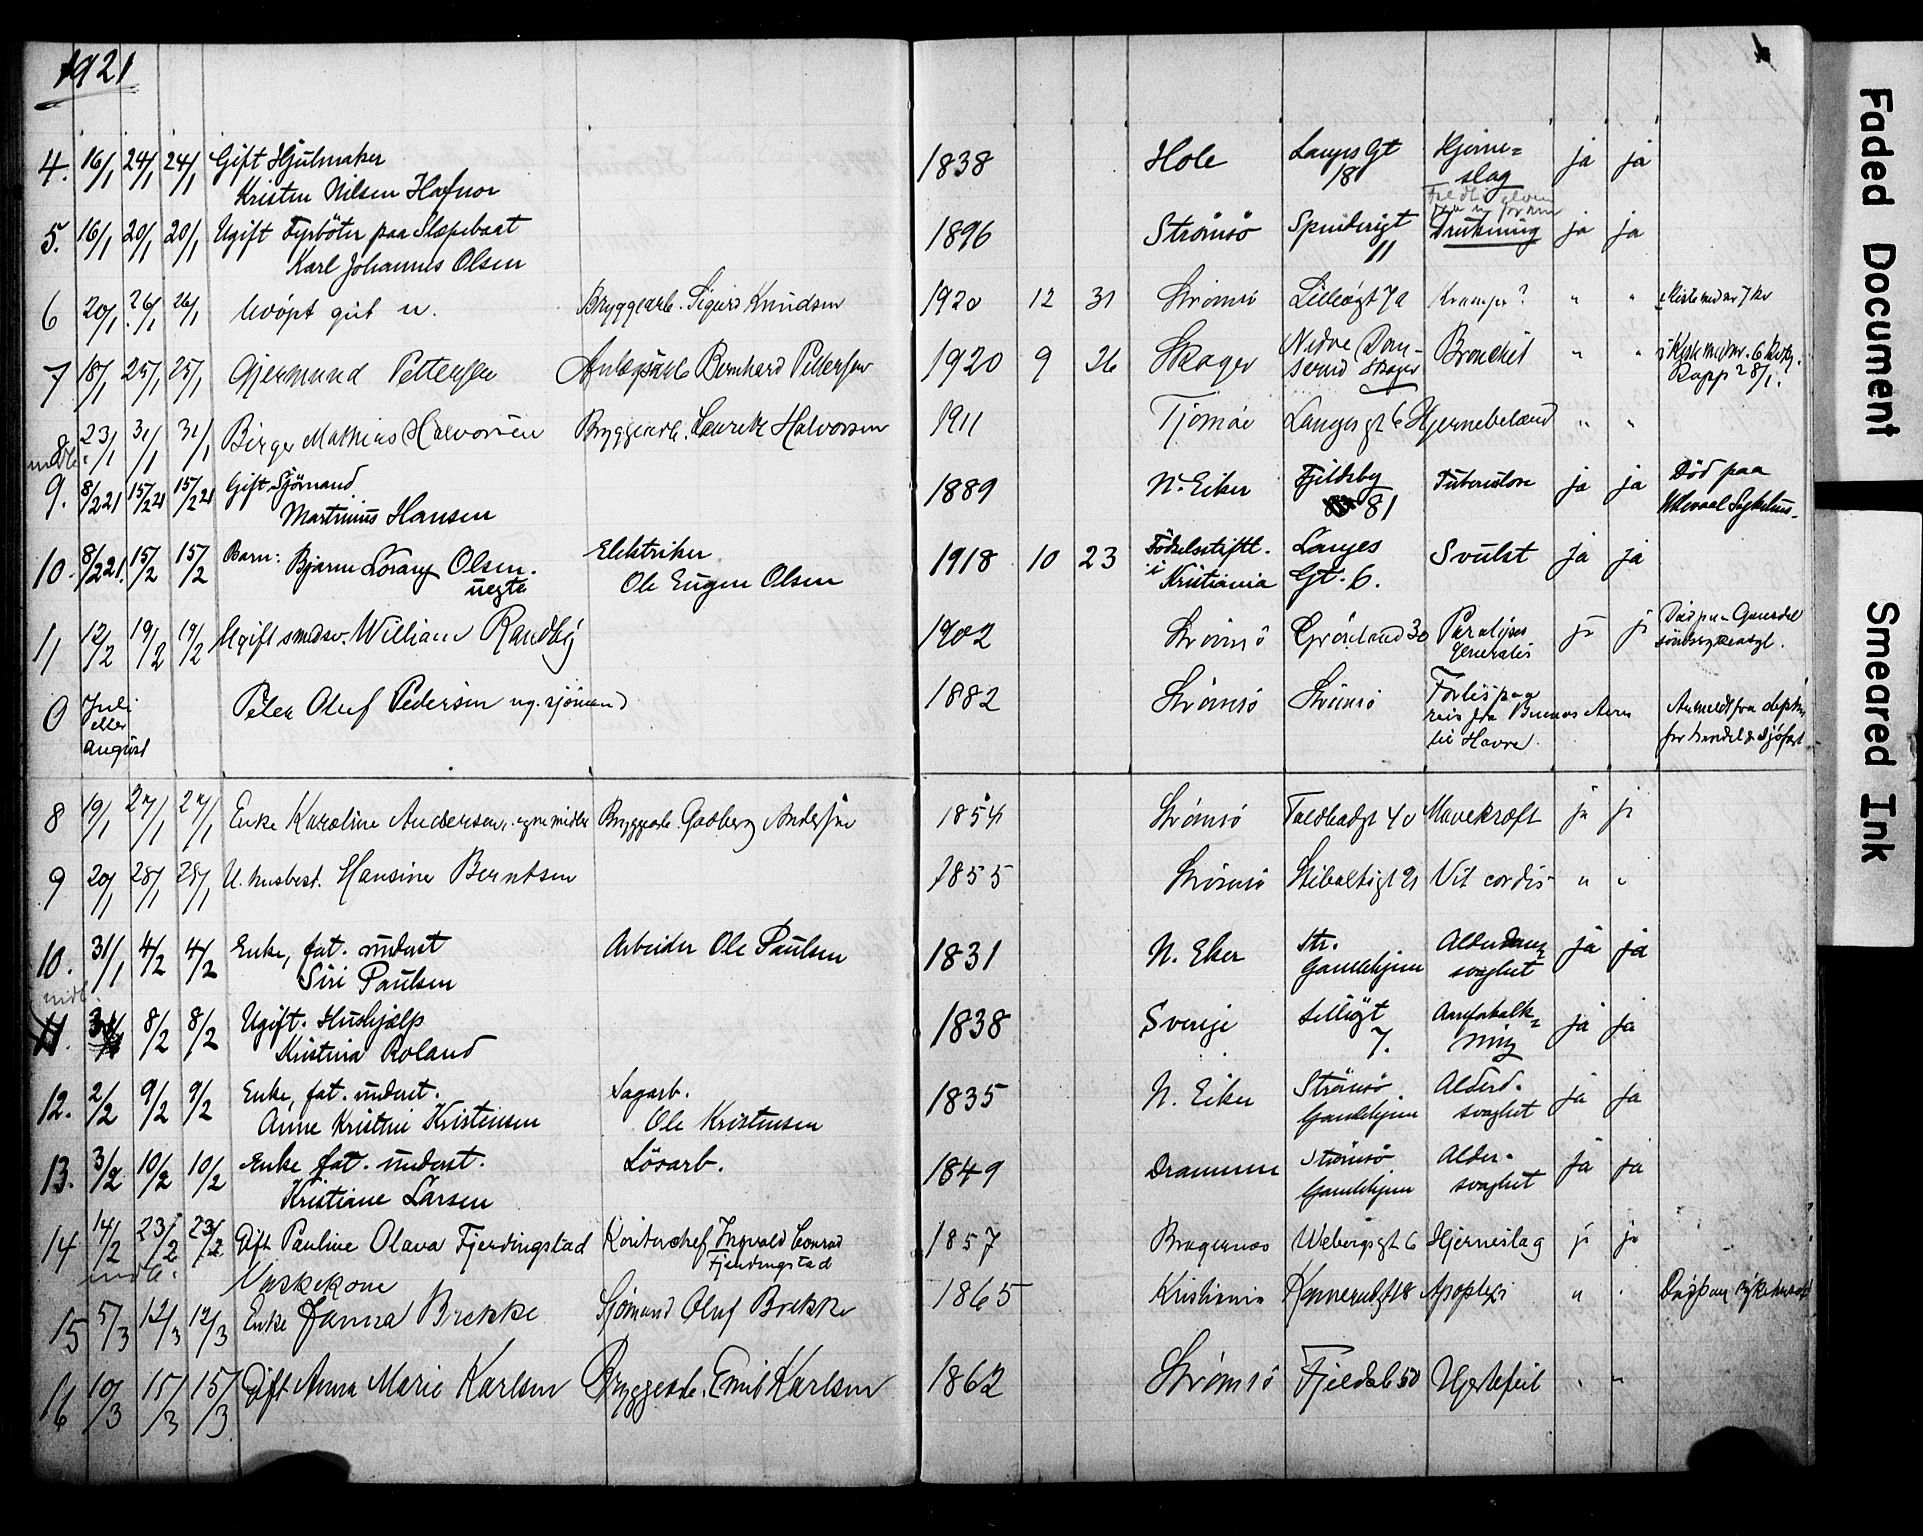 1921
4. 16/1 24/1 24/1 Gift Hjulmaker Kristen Nilsen Hafnor 1838 Hole Langes Gt 18 Hjerne=slag ja ja
5. 16/1 20/1 20/1 Ugift Fyrböter paa Slæpebaat Karl Johannes Olsen 1896 Strömsö Spinderigt 11 Drukning ja ja
6 20/1 26/1 26/1 Udöpt gut u. Bryggearb. Sigurd Knudsen 1920 12 31 Strömsö Lilleögt 7a Krampe? " "
7 18/1 25/1 25/1 Gjermund Pettersen Anlægsarb Bernhard Pettersen 1920 9 26 Skoger Nedre Skoger Bronchit " "
8. 23/1 31/1 31/1 Birger Mathias Halvorsen Bryggearb. Lauritz Halvorsen 1911 Tjömöe Langesgt 6 Hjernebetænd " "
indb.
9. 8/2 21 15/2 21 15/2 21 Gift Sjömand Martinius Hansen 1889 N. Eiker Fjeldsby 81 Tuberculose ja ja Död paa Ullevaal Sykehus
10. 8/2 21. 15/2 15/2 Barn: Bjarne Lorang Olsen. uegte Elektriker Ole Eugen Olsen 1918 10 23 Födselsstift. i Kristiania Langes Gt. 6. Svulst ja ja
11 12/2 19/2 19/2 Ugift smedsv. William Randby 1902 Strömsö Grönland 30 Paralyses generalis ja ja
0 Juli eller august Peter Oluf Pedersen ug. sjömand 1882 Strömsö Strömsö Forlis paa reis fra Buenos Aires til Havre. Anmeldt fra dept. for handel & sjöfart
8 19/1 27/1 27/1 Enke Karoline Andersen, egne midler Bryggearb. Gudberg Andersen 1854 Strömsö Toldbodgt 40 Mavekræft ja ja
9 20/1 28/1 28/1 U. husbest. Hansine Berntsen 1855 Strömsö Stiboltsgt 21 Vit cordis " "
10. 31/1 4/2 4/2 Enke, fat. underst Siri Paulsen Arbeider Ole Paulsen 1831 N. Eker Str. Gamlehjem Alderdoms svaghet ja ja
indb.
11. 8/2 8/2 Ugift. Hushjælp Kristina Roland 1838 Sverige Lilleögt 7. Aareforkalk=ning ja ja
12. 2/2 9/2 9/2 Enke, fat. underst. Anne Kristine Kristensen Sagarb. Ole Kristensen 1835 N. Eiker Strömsö Gamlehjem Alderd. svaghet ja ja
13. 3/2 10/2 10/2 Enke fat. underst. Kristiane Larsen Lösarb. 1849 Drammen Strömsö Gamlehjem Alder-svaghet ja ja
14 14/2 23/2 23/2 Gift Pauline Olava Fjerdingstad Kontorchef Ingvald Conrad Fjerdingstad 1857 Bragernæs Webergsgt 6 Hjerneslag ja ja
indb.
15 5/3 12/3 12/3 Vaskekone Enke Janna Brekke Sjömand Oluf Brekke 1865 Kristiania Konnerudgt 18 Apoplexi " "
16 10/3 15/3 15/3 Gift Anna Marie Karlsen Bryggearb. Emil Karlsen 1862 Strömsö Fjeldsb 50 Hjertefeil " "
Faded Document
Smeared Ink